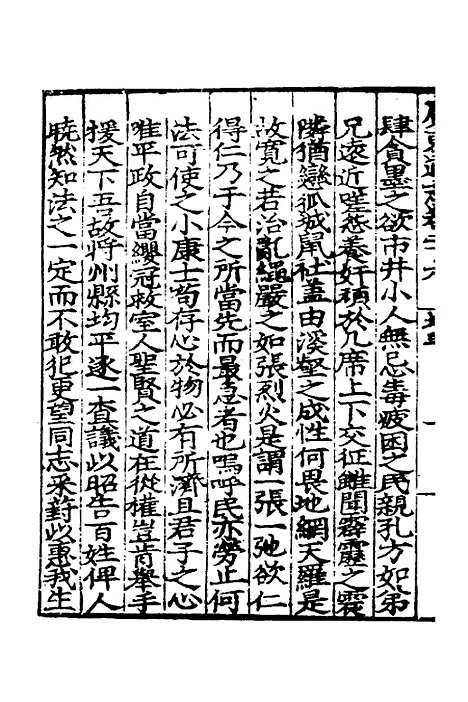 廣東通志卷二六
肆貪墨之欲市井小人無忌毒疲困之民親孔方如弟
兄遠近嗟怨養奸頑於几席上下交征雖聞霹靂之震
隣猶戀狐城鼠社蓋由溪壑之成性何畏地網天羅是
故寬之若治亂繩嚴之如張烈火是謂一張一弛欲仁
得仁乃于今之所當先而最急者也嗚呼民亦勞止何
法可使之小康士苟存心於物必有所濟且君子之心
唯平政自當纓冠救室人聖賢之道在從權豈肯舉手
援天下吾故將州縣均平逐一查議以昭告百姓俾人
曉然知法之一定而不敢犯更望同志采葑以惠我生